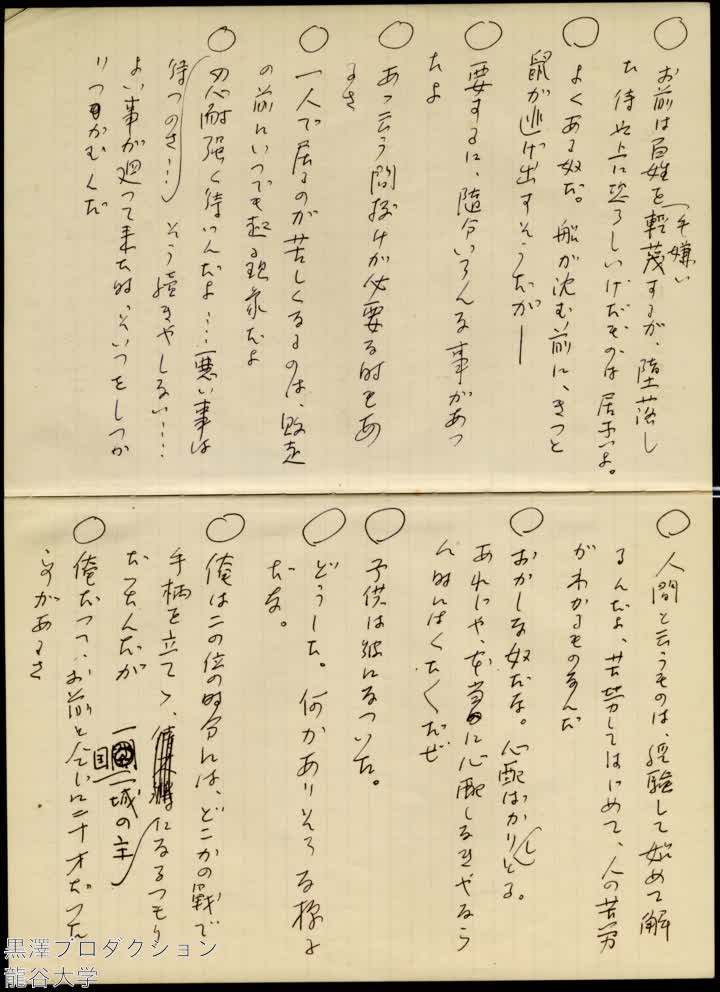 ○ お前は百姓を軽蔑するが、堕落し
毛嫌い
た侍以上に恐ろしいけだものは居ないよ。
○ よくある奴だ。船が沈む前に、きっと
鼠が逃げ出すそうだが──
○ 要するに、随分いろんな事があつ
たよ
○ あゝ云う間抜けが必要な時もあ
るさ
○ 一人で居るのが苦しくなるのは、敗走
の前にいつでも起る現象だよ
○ 忍耐強く待つんだよ…悪い事は
待つのさ… そう続きやしない……
よい事が廻って来た時、そいつをしつか
りつかむんだ
○ 人間と云うものは、経験して始めて解
るんだよ、苦労してはじめて、人の苦労
がわかるものなんだ
○ おかしな奴だな。心配ばかりしとる。
あれじや、本当に心配しなきやなら
ん時にはくたくだぜ
○ 子供は彼になついた。
○ どうした。何かありそうな様子
だな。
○ 俺はこの位の時分には、どこかの戦で
手柄を立てゝ、 になるつもり
だったんだが 一国一城の主
○ 俺だつて、お前と会いに二十才だった
事があるさ
黒澤プロダクション
龍谷大学